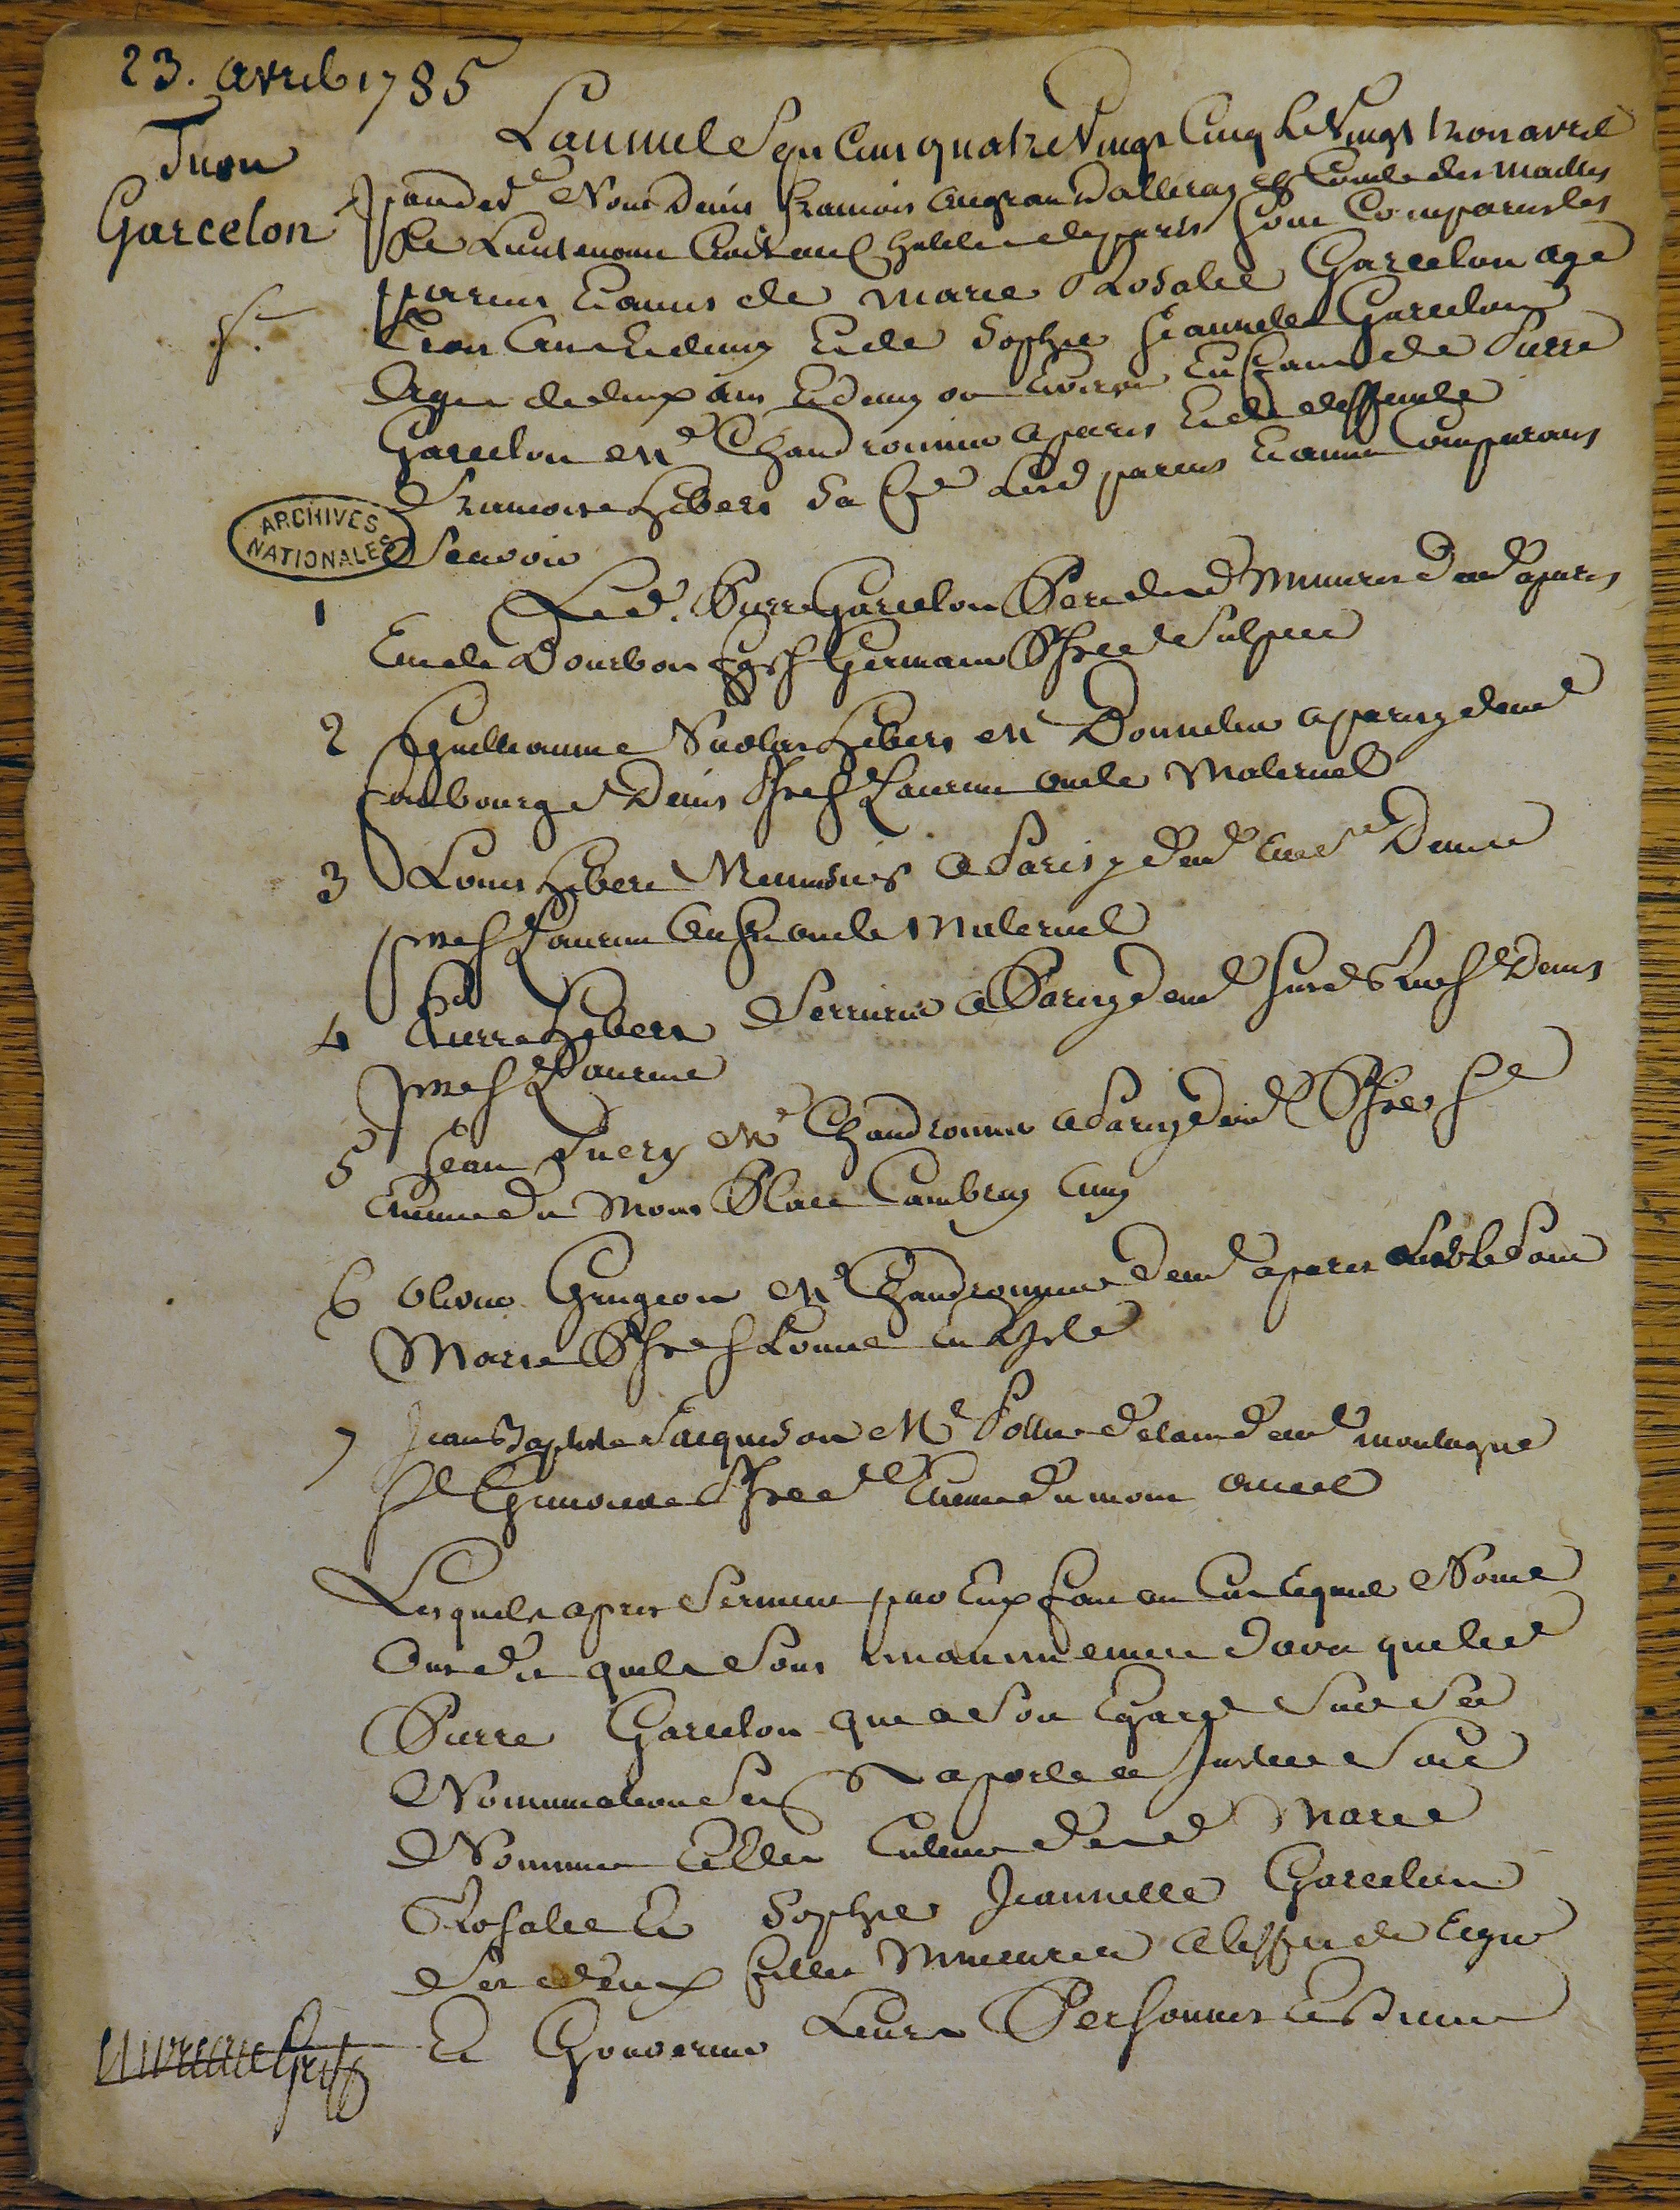 23. avril 1785
Tuon
Garcelon
Lan mil Sept Cent quatre Vingt Cinq le Vingt trois avril
pardevt Nous Denis francois angran Dalleray Comte des mailles
Le Lieutenant Civil au Chatelet de paris Sont Comparus les
parens Et amis de marie Rosalie Garcelon agé
Trois ans Et demy Et de Sophie Jeannette Garcelon
agée de deux ans Et demy ou Environ Enfans de Pierre
Garcelon Me Chaudronnier a paris Et de deffunte
francoise hebert Sa fe Lesd parens Et amis Comparans
Scavoir
ARCHIVES
NATIONALES
1 Led. Pierre Garcelon Pere desd Mineures demt a paris
Rue de Bourbon fg St Germain Psse St Sulpice
2 Guillaume Nicolas hebert Me Bonnetier a paris y demt
faubourg St Denis Psse St Laurent oncle Maternel
3 Louis hebert Menuisier a Paris y demt Rue St Denis
psse St Laurent aussy oncle Maternel
4 Pierre hebert Serrurier a Paris y demt susd Rue St Denis
psse St Laurent
5 Jean Tuery Me Chaudronnier a Paris y demt Psse St
Etienne du Mont Place Cambray amy
6 olivier Grugeon Me Chaudronnier demt a paris Pont
Marie Psse St Louis en Lisle
7 Jean Baptiste Jacquesson Me Pottier d'etain demt montagne
Ste Genevieve Psse St Etienne du mont amis
Lesquels apres Serment par Eux fait en Cas Requis Nous
Ont dit quils Sont unanimement Davis que led
Pierre Garcelon que a Son Egard Sur Sa
Nomination Sen Raporte a Justice Soit
Nommé Et Elu Tuteur desd Marie
Rosalie Et Sophie Jeannette Garcelon
Ses deux filles Mineures a leffet de Regir
Et Gouverner Leurs Personnes Et Biens